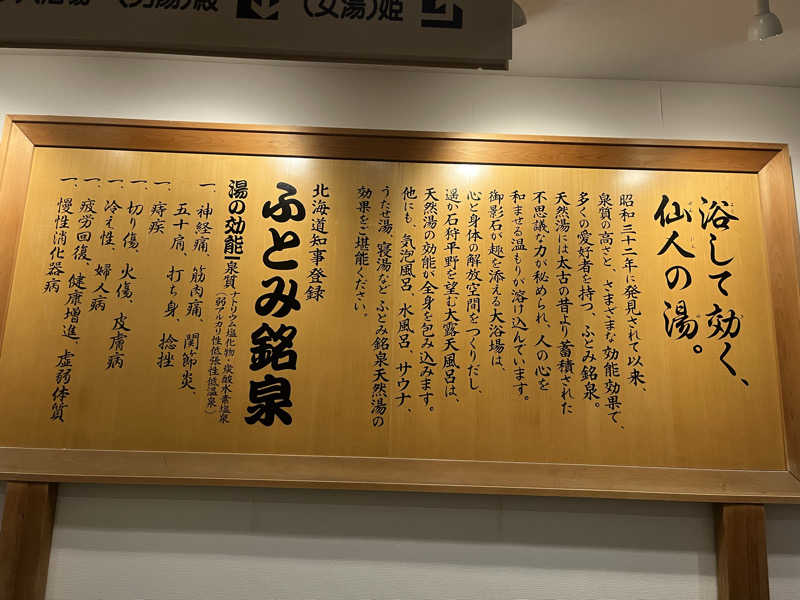 (男湯)殿
(女湯)姫
浴して効く、
仙人の湯。
昭和三十二年に発見されて以来、
泉質の高さと、さまざまな効能効果で、
多くの愛好者を持つ、ふとみ銘泉。
天然湯には太古の昔より蓄積された
不思議な力が秘められ、人の心を
和ませる温もりが溶け込んでいます。
御影石が趣を添える大浴場は、
心と身体の解放空間をつくりだし、
遥か石狩平野を望む大露天風呂は、
天然湯の効能が全身を包み込みます。
他にも、気泡風呂、水風呂、サウナ、
うたせ湯、寝湯など、ふとみ銘泉天然湯の
効果をご堪能ください。
北海道知事登録
ふとみ銘泉
湯の効能 泉質 ナトリウム塩化物・炭酸水素塩泉
(弱アルカリ性低張性低温泉)
一、神経痛、筋肉痛、関節炎、
五十肩、打ち身、捻挫
一、痔疾
一、切り傷、火傷、皮膚病
一、冷え性、婦人病
一、疲労回復、健康増進、虚弱体質
一、慢性消化器病